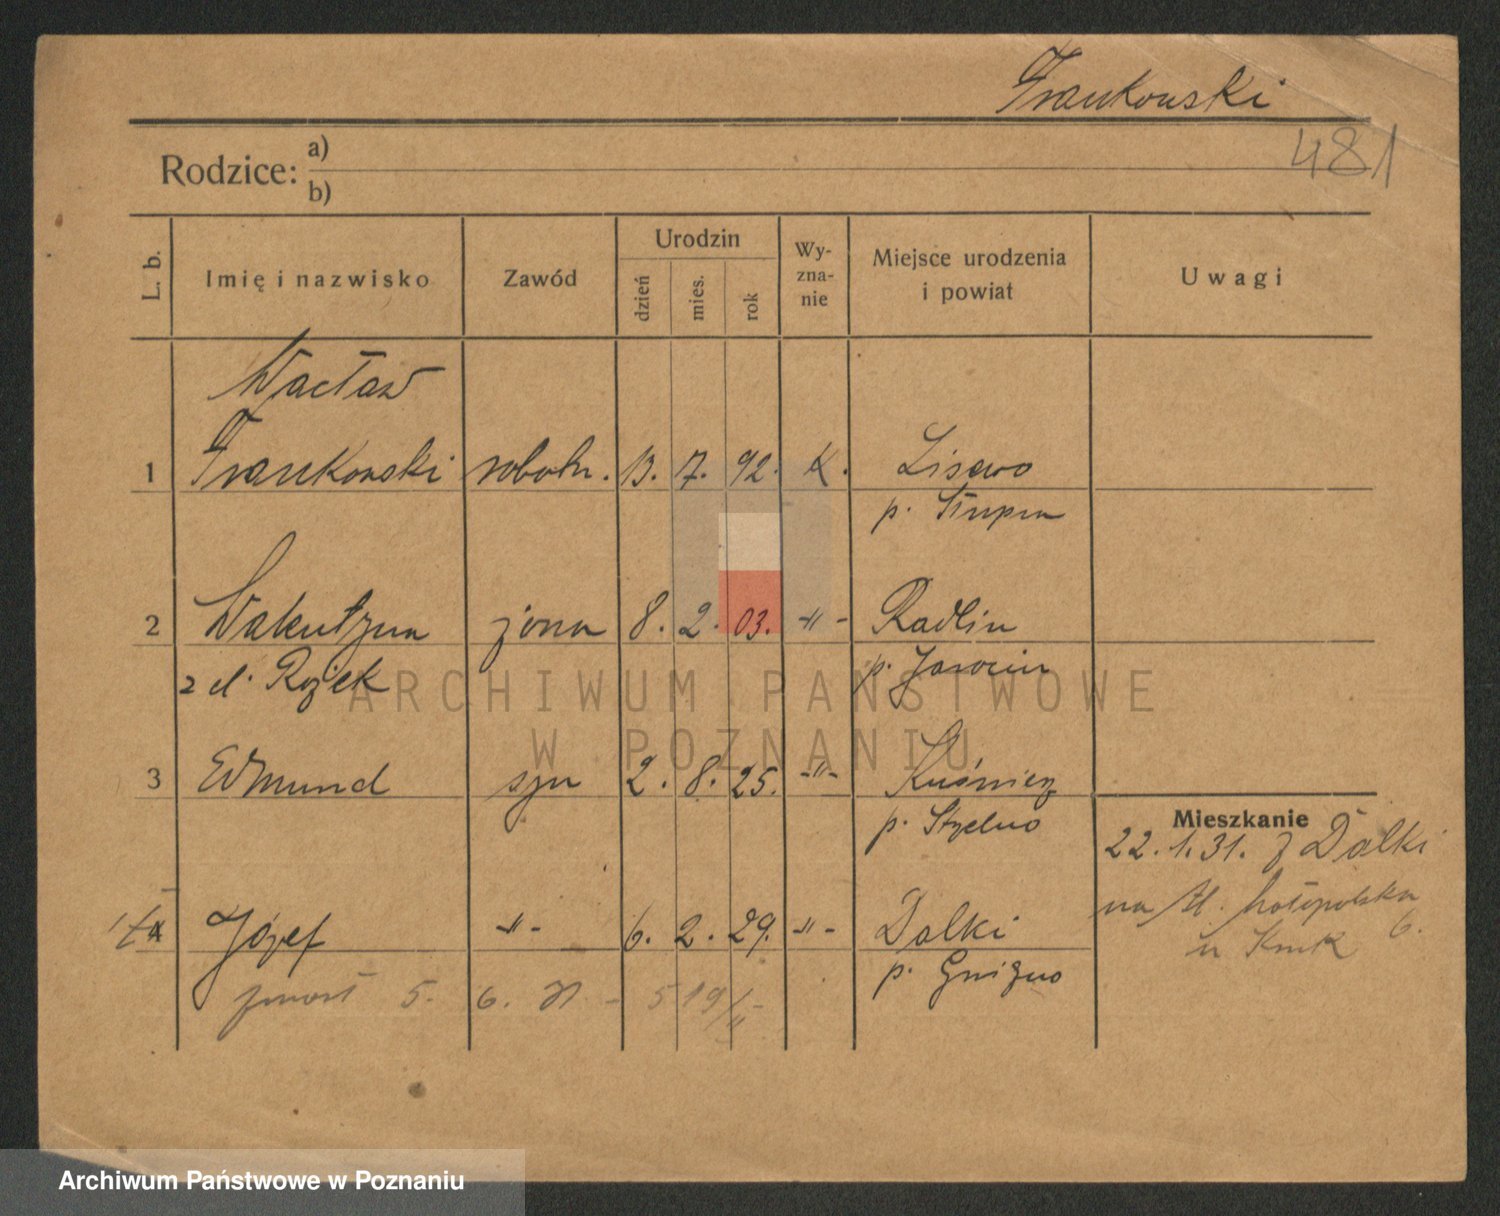 Frankowski
481
Rodzice: a)
b)
L. b. Imię i nazwisko Zawód Urodzin dzień mies. rok Wy-zna-nie Miejsce urodzenia i powiat Uwagi
Wacław
1 Frankowski robotn. 13. 7. 92. K. Lisewo
p. Słupca
2 Walentyna żona 8. 2. 03. -"- Radlin
z d. Rożek p. Jarocin
3 Edmund syn 2. 8. 25. -"- Kuśnierz
p. Strzelno
Mieszkanie
22.1.31. z Dalki
na Ul.
6.
4 Józef -"- 6. 2. 29. -"- Dalki
p. Gniezno
zmarł 5. 6. 31 - 519/
ARCHIWUM PAŃSTWOWE
W POZNANIU
Archiwum Państwowe w Poznaniu